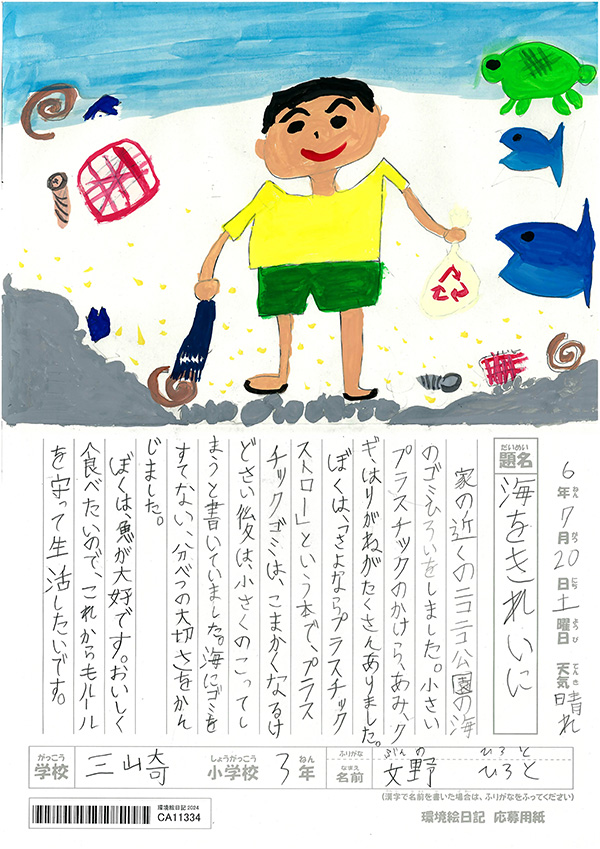 6年7月20日土曜日 天気晴れ
ねん がつ にち ようび てんき
だいめい
題名
海をきれいに
家の近くのニコニコ公園の海
のゴミひろいをしました。小さい
プラスチックのかけら、あみ、ク
ギ、はりがねがたくさんありました。
ぼくは、「さよならプラスチック
ストロー」という本で、プラス
チックゴミは、こまかくなるけ
どさい後は、小さくのこってし
まうと書いていました。海にゴミを
すてない、分べつの大切さをかん
じました。
ぼくは、魚が大好です。おいしく
食べたいので、これからもルール
を守って生活したいです。
がっこう
学校
三山崎
しょうがっこう
小学校
3
ねん
年
ふりがな
ぶんの ひろと
なまえ
名前
文野 ひろと
(漢字で名前を書いた場合は、ふりがなをふってください)
環境絵日記 2024
CA11334
環境絵日記 応募用紙